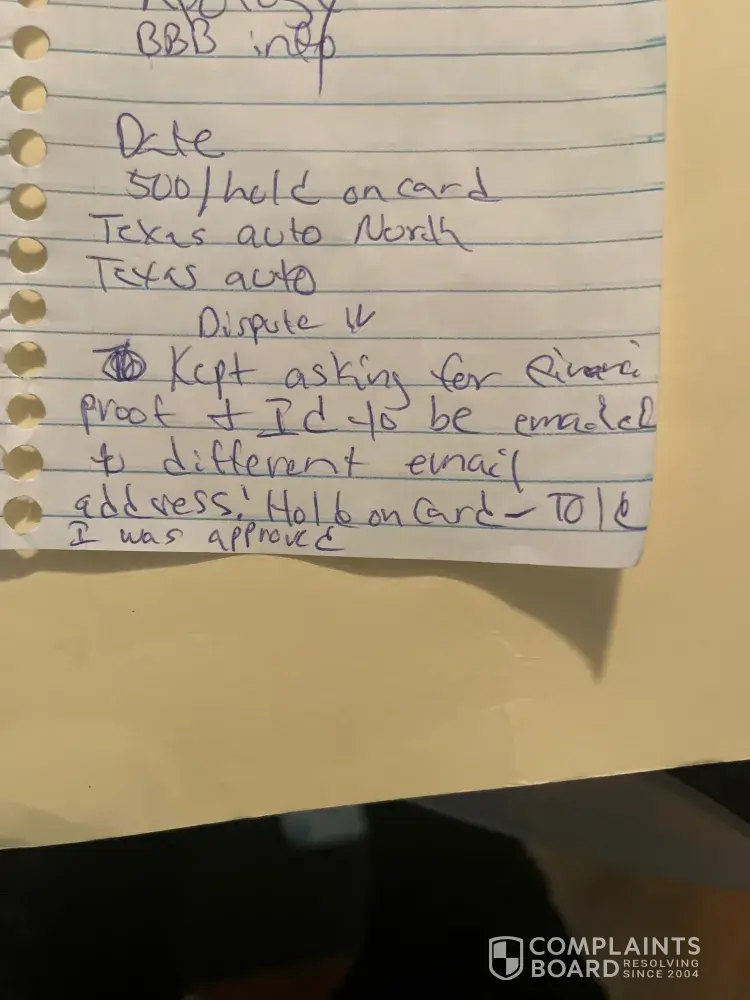 Apology
BBB
Date
500/held on card
Texas auto North
Texas auto
Dispute
Kept asking for
proof + Id to be emailed
to different email
address! Hold on Card - Told
I was approved
COMPLAINTS
BOARD RESOLVING
SINCE 2004